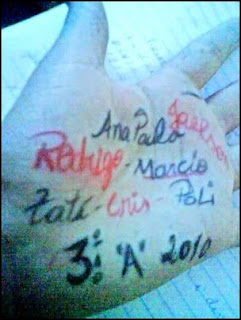 Ana Paula
Rodrigo - Marcio
Tati - Cris - Poli
3º "A" 2010